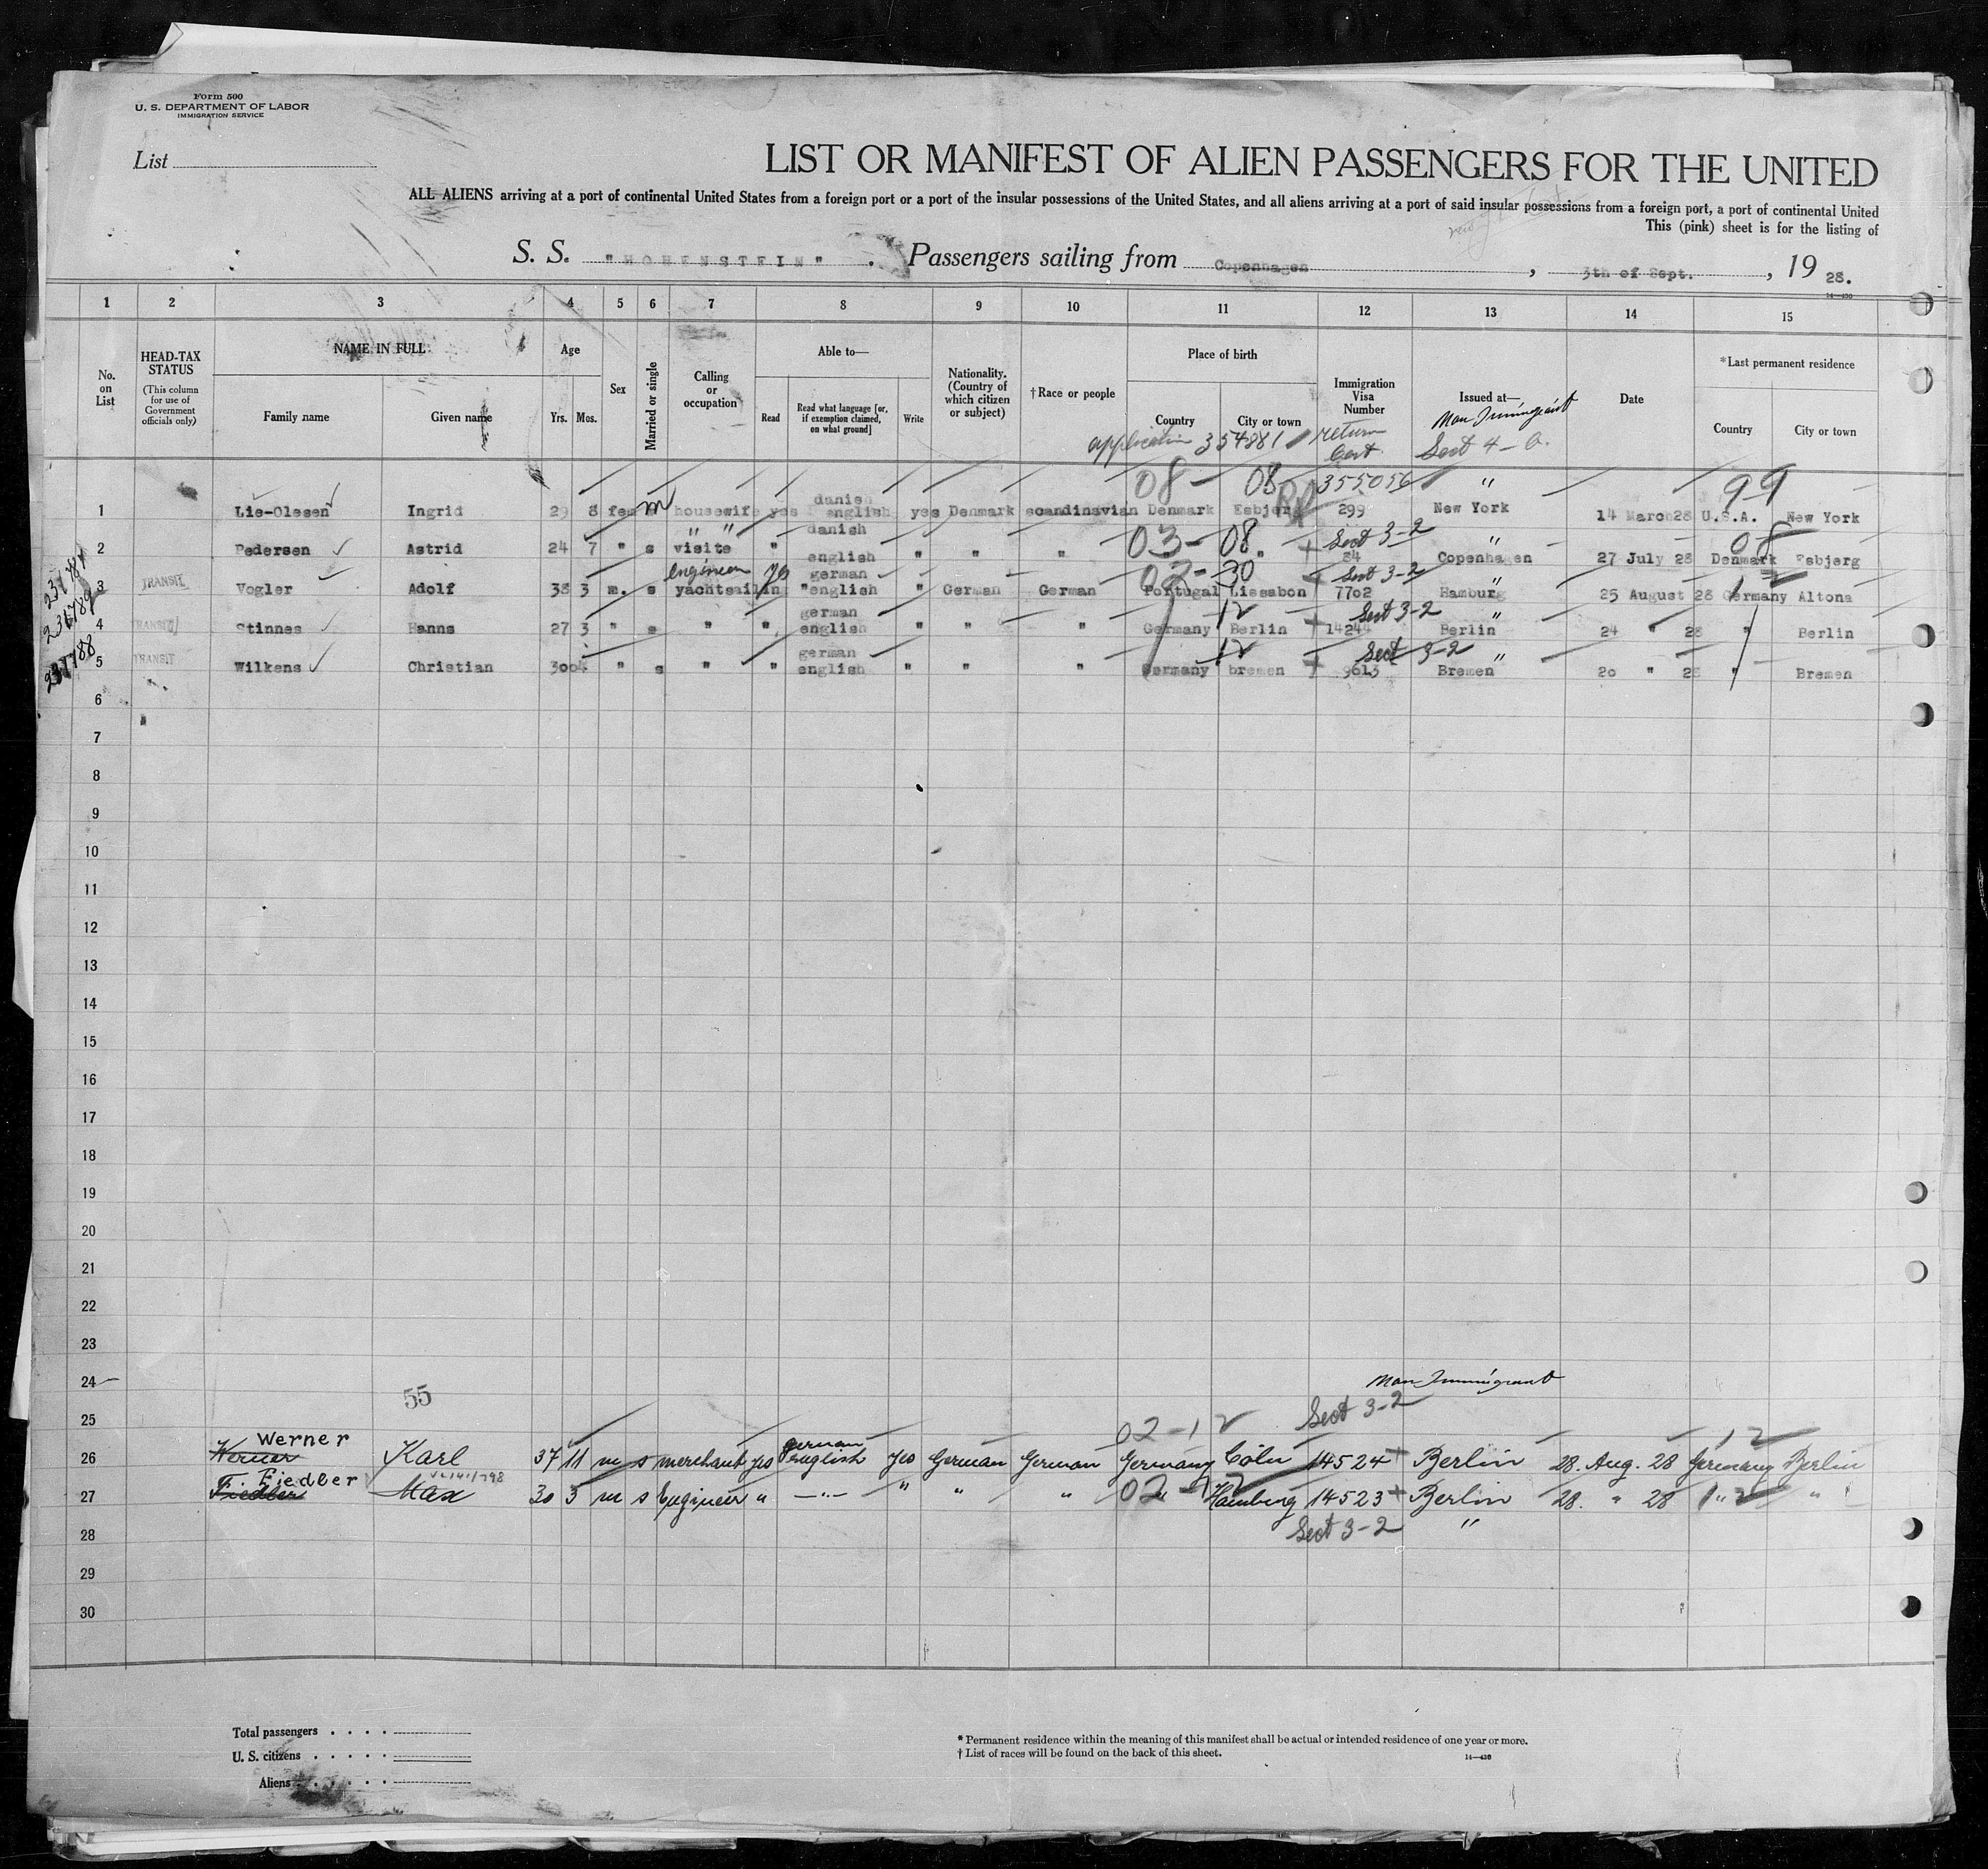 Form 500
U. S. DEPARTMENT OF LABOR
IMMIGRATION SERVICE
List
LIST OR MANIFEST OF ALIEN PASSENGERS FOR THE UNITED
ALL ALIENS arriving at a port of continental United States from a foreign port or a port of the insular possessions of the United States, and all aliens arriving at a port of said insular possessions from a foreign port, a port of continental United
This (pink) sheet is for the listing of
S. S. "HOHENSTEIN" . Passengers sailing from Copenhagen , 3th of Sept. , 19 28.
14—430
1 2 3 4 5 6 7 8 9 10 11 12 13 14 15
No. on List
HEAD-TAX STATUS
(This column for use of Government officials only)
NAME IN FULL
Family name Given name
Age
Yrs. Mos.
Sex
Married or single
Calling or occupation
Able to—
Read
Read what language [or, if exemption claimed, on what ground]
Write
Nationality. (Country of which citizen or subject)
†Race or people
Place of birth
Country City or town
Immigration Visa Number
Issued at—
Date
*Last permanent residence
Country City or town
Non-Immigrant
application 354881 return Cert. Sect 4-
08- 08 355056 " 99
danish
1 Lie-Olesen Ingrid 29 8 fem m housewife yes english yes Denmark scandinavian Denmark Esbjerg 299 New York 14 March 28 U.S.A. New York
" " danish 03- 08 Sect 3-2 " 08
2 Pedersen Astrid 24 7 " s visite " english " " " " 84 Copenhagen 27 July 28 Denmark Esbjerg
engineer yes german 02-30 Sect 3-2 " 12
3 TRANSIT Vogler Adolf 38 3 m. s yachtsailing "english " German German Portugal Lissabon 7702 Hamburg 25 August 28 Germany Altona
german 12 Sect 3-2 "
4 TRANSIT Stinnes Hanns 27 3 " s " " english " " " Germany Berlin 14244 Berlin 24 " 28 " Berlin
german 12 Sect 3-2 "
5 TRANSIT Wilkens Christian 30 04 " s " " english " " " Germany bremen 9613 Bremen 20 " 28 " Bremen
6
7
8
9
10
11
12
13
14
15
16
17
18
19
20
21
22
23
24 Non-Immigrant
55 Sect 3-2
25 02-12
Werner german 12
26 Werner Karl 37 11 m s merchant yes english yes German German Germany Cöln 14524 Berlin 28. Aug. 28 Germany Berlin
F. Fiedler
27 Fiedler Max 30 3 m s Engineer " —"— " " " 02-12 Hamburg 14523 Berlin 28. " 28 12 "
28 Sect 3-2 "
29
30
Total passengers . . . .
U. S. citizens . . . . .
Aliens . . . . . .
* Permanent residence within the meaning of this manifest shall be actual or intended residence of one year or more.
† List of races will be found on the back of this sheet.
14—430